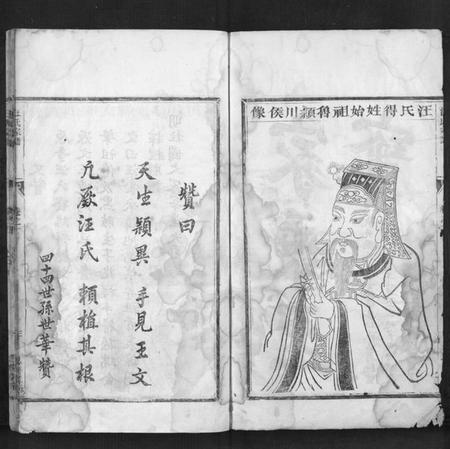 汪氏得姓始祖魯潁川侯像
贊曰
天生穎異 手見王文
亢厥汪氏 賴植其根
四十四世孫世華贊